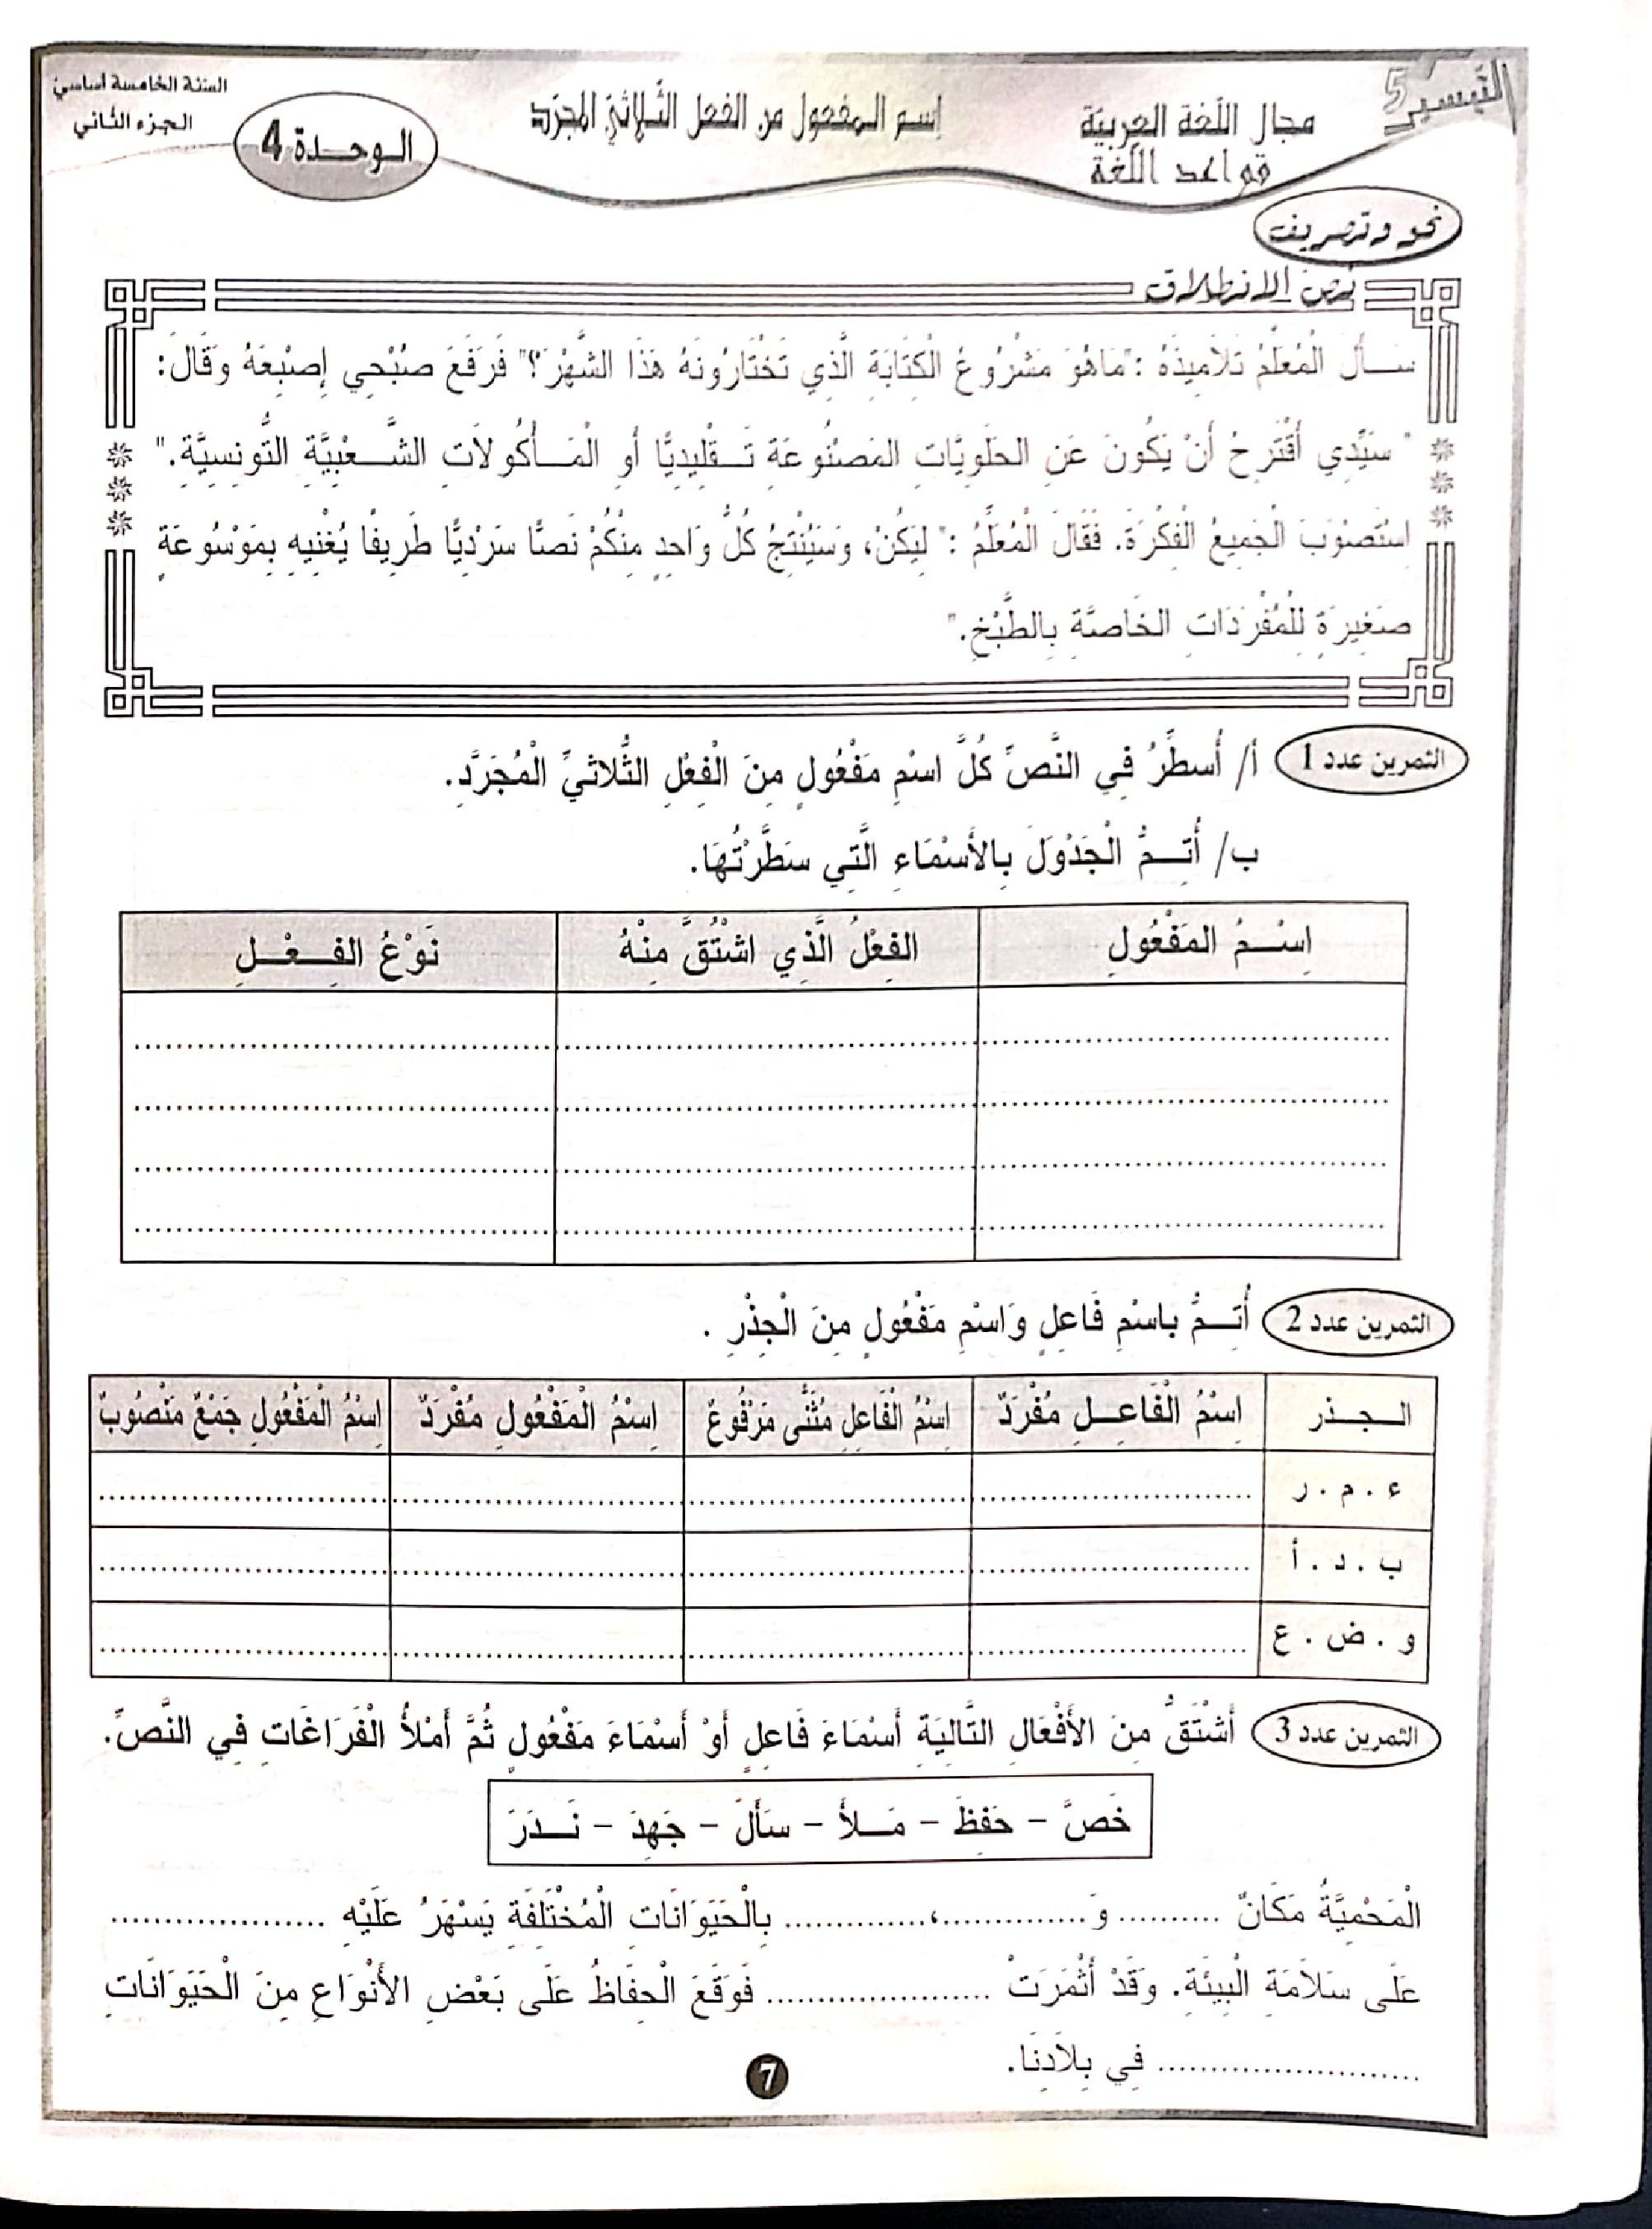 التيسير 5
مجال اللّغة العربيّة
قواعد اللّغة
إسم المفعول من الفعل الثّلاثيّ المجرّد
الوحدة 4
السّنة الخامسة أساسي
الجزء الثّاني
نحو وتصريف
نصّ الانطلاق
سَأَلَ الْمُعَلِّمُ تَلاَمِيذَهُ :"مَاهُوَ مَشْرُوعُ الْكِتَابَةِ الَّذِي تَخْتَارُونَهُ هَذَا الشَّهْرَ؟" فَرَفَعَ صُبْحِي إِصْبِعَهُ وَقَالَ:
" سَيِّدِي أَقْتَرِحُ أَنْ يَكُونَ عَنِ الحَلَوِيَّاتِ المَصْنُوعَةِ تَقْلِيدِيًّا أو الْمَأْكُولاَتِ الشَّعْبِيَّةِ التُّونِسِيَّةِ."
اِسْتَصْوَبَ الْجَمِيعُ الْفِكْرَةَ. فَقَالَ الْمُعَلِّمُ :" لِيَكُنْ، وَسَيُنْتِجُ كُلُّ وَاحِدٍ مِنْكُمْ نَصًّا سَرْدِيًّا طَرِيفًا يُغْنِيهِ بِمَوْسُوعَةٍ
صَغِيرَةٍ لِلْمُفْرَدَاتِ الخَاصَّةِ بِالطَّبْخِ."
التمرين عدد 1 أ/ أُسَطِّرُ فِي النَّصِّ كُلَّ اسْمِ مَفْعُولٍ مِنَ الْفِعْلِ الثُّلاثيِّ الْمُجَرَّدِ.
ب/ أُتِمُّ الْجَدْوَلَ بِالأَسْمَاءِ الَّتِي سَطَّرْتُهَا.
اِسْمُ المَفْعُولِ الفِعْلُ الَّذِي اشْتُقَّ مِنْهُ نَوْعُ الفِعْلِ
التمرين عدد 2 أُتِمُّ باسْمِ فَاعِلٍ وَاسْمِ مَفْعُولٍ مِنَ الْجِذْرِ .
الجذر اِسْمُ الْفَاعِلِ مُفْرَدٌ اِسْمُ الْفَاعِلِ مُثَنَّى مَرْفُوعٌ اِسْمُ الْمَفْعُولِ مُفْرَدٌ اِسْمُ الْمَفْعُولِ جَمْعٌ مَنْصُوبٌ
ء . م . ر
ب . د . أ
و . ض . ع
التمرين عدد 3 أَشْتَقُّ مِنَ الأَفْعَالِ التَّالِيَةِ أَسْمَاءَ فَاعِلٍ أَوْ أَسْمَاءَ مَفْعُولٍ ثُمَّ أَمْلأُ الْفَرَاغَاتِ فِي النَّصِّ.
خَصَّ – حَفِظَ – مَلأَ – سَأَلَ – جَهِدَ – نَدَرَ
الْمَحْمِيَّةُ مَكَانٌ .......... وَ..............،.............. بِالْحَيَوَانَاتِ الْمُخْتَلِفَةِ يَسْهَرُ عَلَيْهِ ....................
عَلَى سَلاَمَةِ الْبِيئَةِ. وَقَدْ أَثْمَرَتْ ...................... فَوَقَعَ الْحِفَاظُ عَلَى بَعْضِ الأَنْوَاعِ مِنَ الْحَيَوَانَاتِ
.......................... فِي بِلاَدِنَا.
7